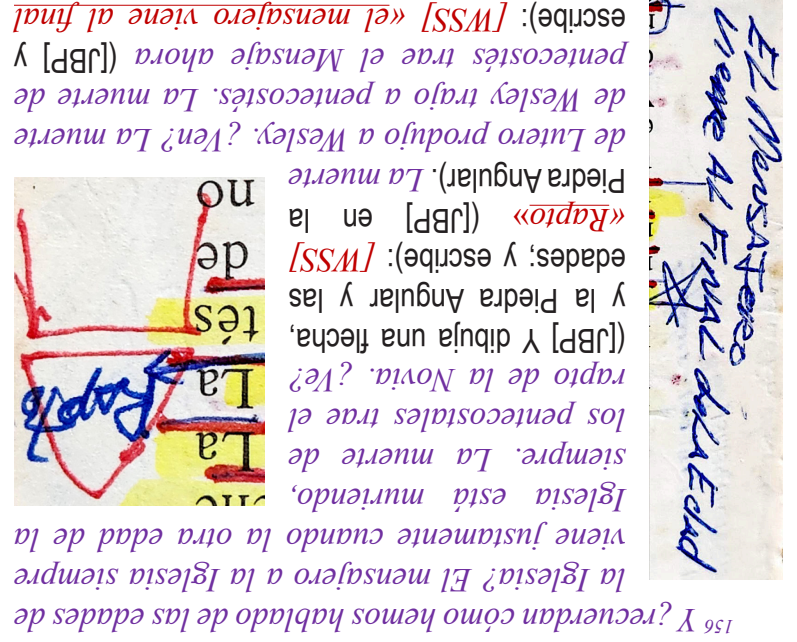 156 Y ¿recuerdan cómo hemos hablado de las edades de
la Iglesia? El mensajero a la Iglesia siempre
viene justamente cuando la otra edad de la
Iglesia está muriendo,
siempre. La muerte de
los pentecostales trae el
rapto de la Novia. ¿Ve?
([JBP] Y dibuja una flecha,
y la Piedra Angular y las
edades; y escribe): [WSS]
«Rapto» ([JBP] en la
Piedra Angular). La muerte
de Lutero produjo a Wesley. ¿Ven? La muerte
de Wesley trajo a pentecostés. La muerte de
pentecostés trae el Mensaje ahora ([JBP] y
escribe): [WSS] «el mensajero viene al final
El Mensajero
viene AL FINAL de la Edad
La
La
tés
de
no
Rapto